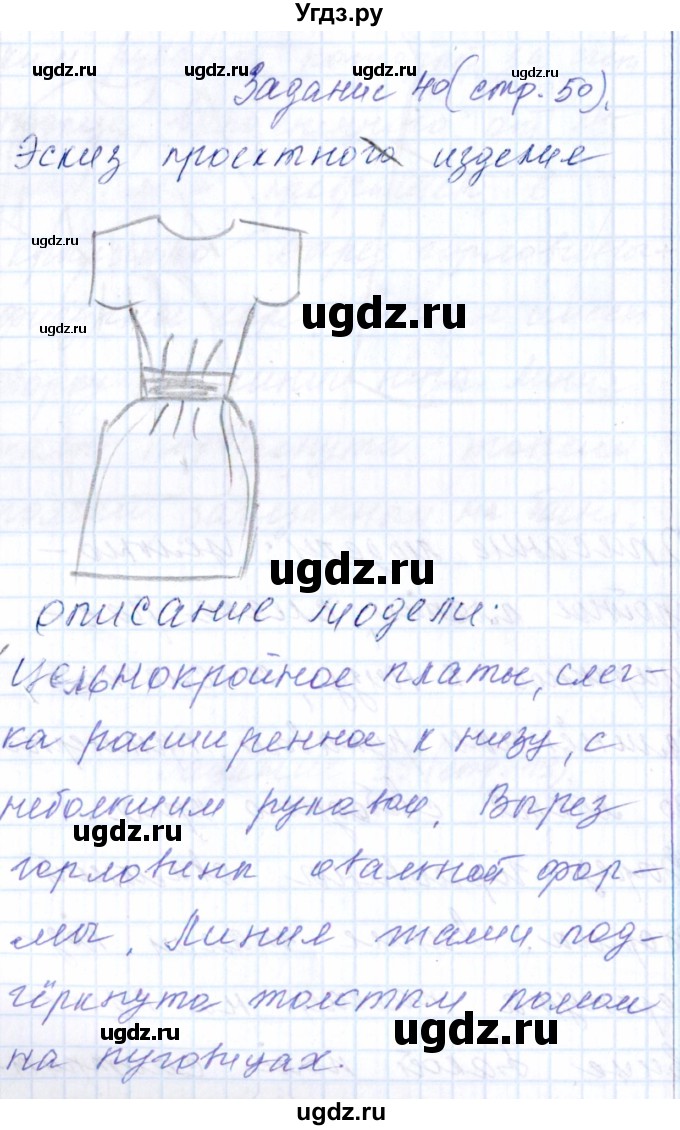 Угдз.ру
ugdz.ru ugdz.ru ugdz.ru ugdz.ru
Задание 40 (стр. 50).
Эскиз проектного изделие
ugdz.ru
ugdz.ru
ugdz.ru
ugdz.ru
описание модели:
Цельнокройное платье, слег-
ка расширенное к низу, с
небольшим рукавом. Вырез
ugdz.ru
горловины овальной фор-
мы. Линия талии под-
чёркнута толстым поясом
ugdz.ru
ugdz.ru
на пуговицах.
ugdz.ru